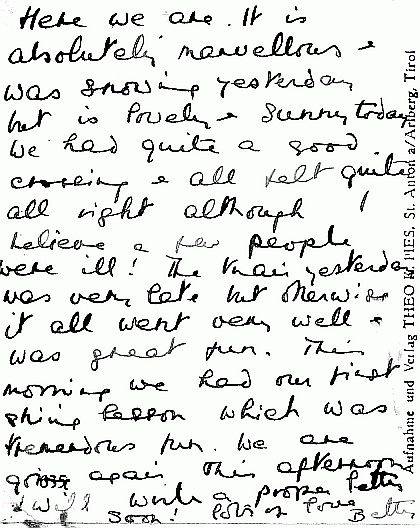 Here we are. It is
absolutely marvellous &
was snowing yesterday
but is lovely & sunny today
We had quite a good
crossing & all felt quite
all right although I
believe a few people
were ill! The train yesterday
was very late but otherwise
it all went very well &
was great fun. This
morning we had our first
skiing lesson which was
tremendous fun. We are
going again this afternoon
I will write a proper letter
soon! lots of love Betty
Aufnahme und Verlag THEO PIES, St. Anton a/Arlberg, Tirol